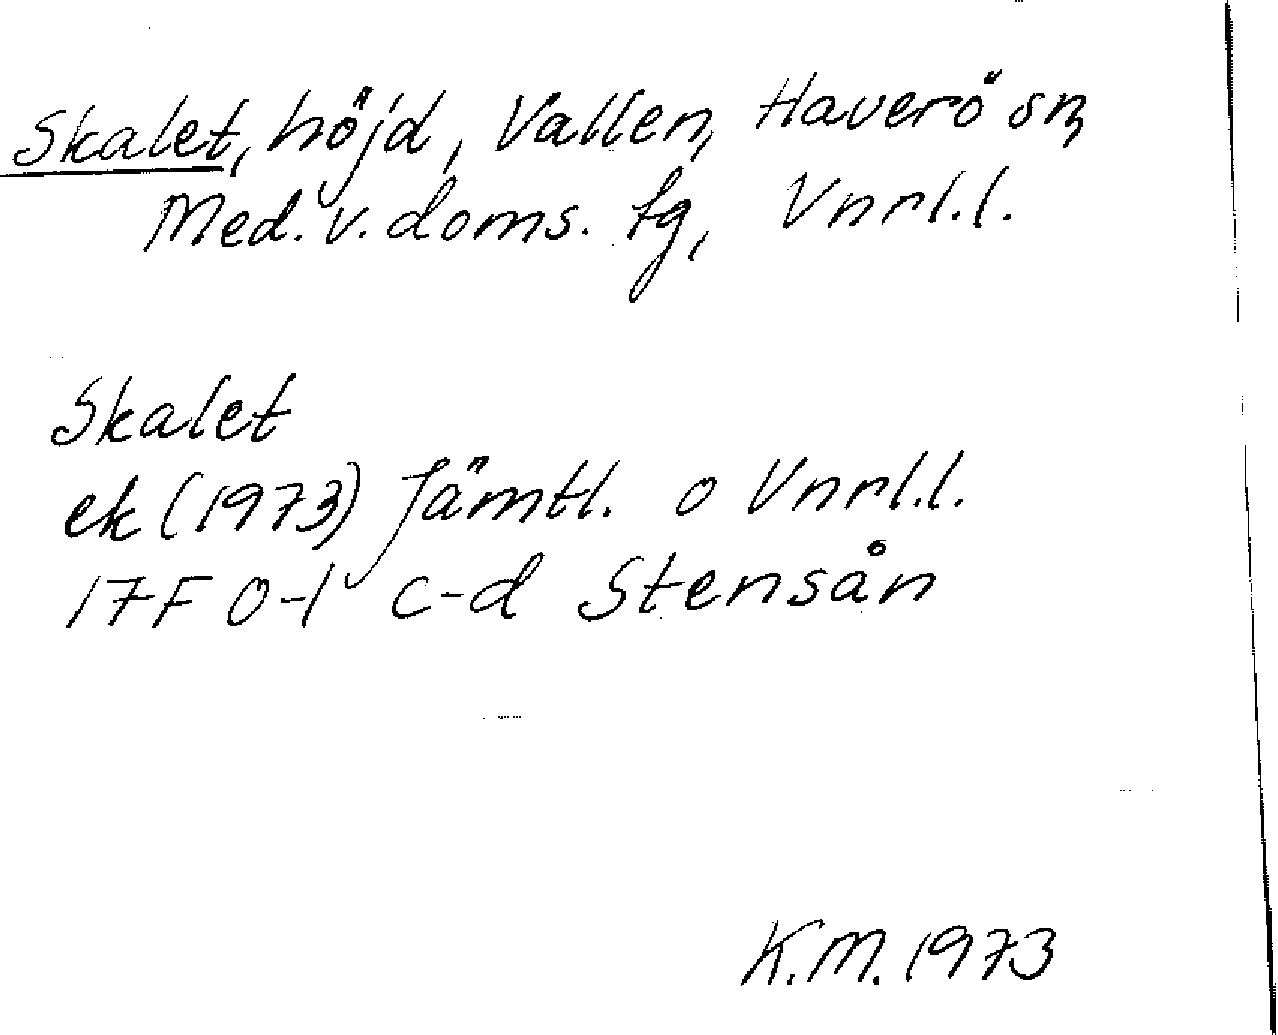 Skalet, höjd, Vallen, Haverö sn,
Med. v. doms. tg, Vnrl.l.
Skalet
ek (1973) Jämtl. o Vnrl.l.
17F 0-1 c-d Stensån
K.M. 1973